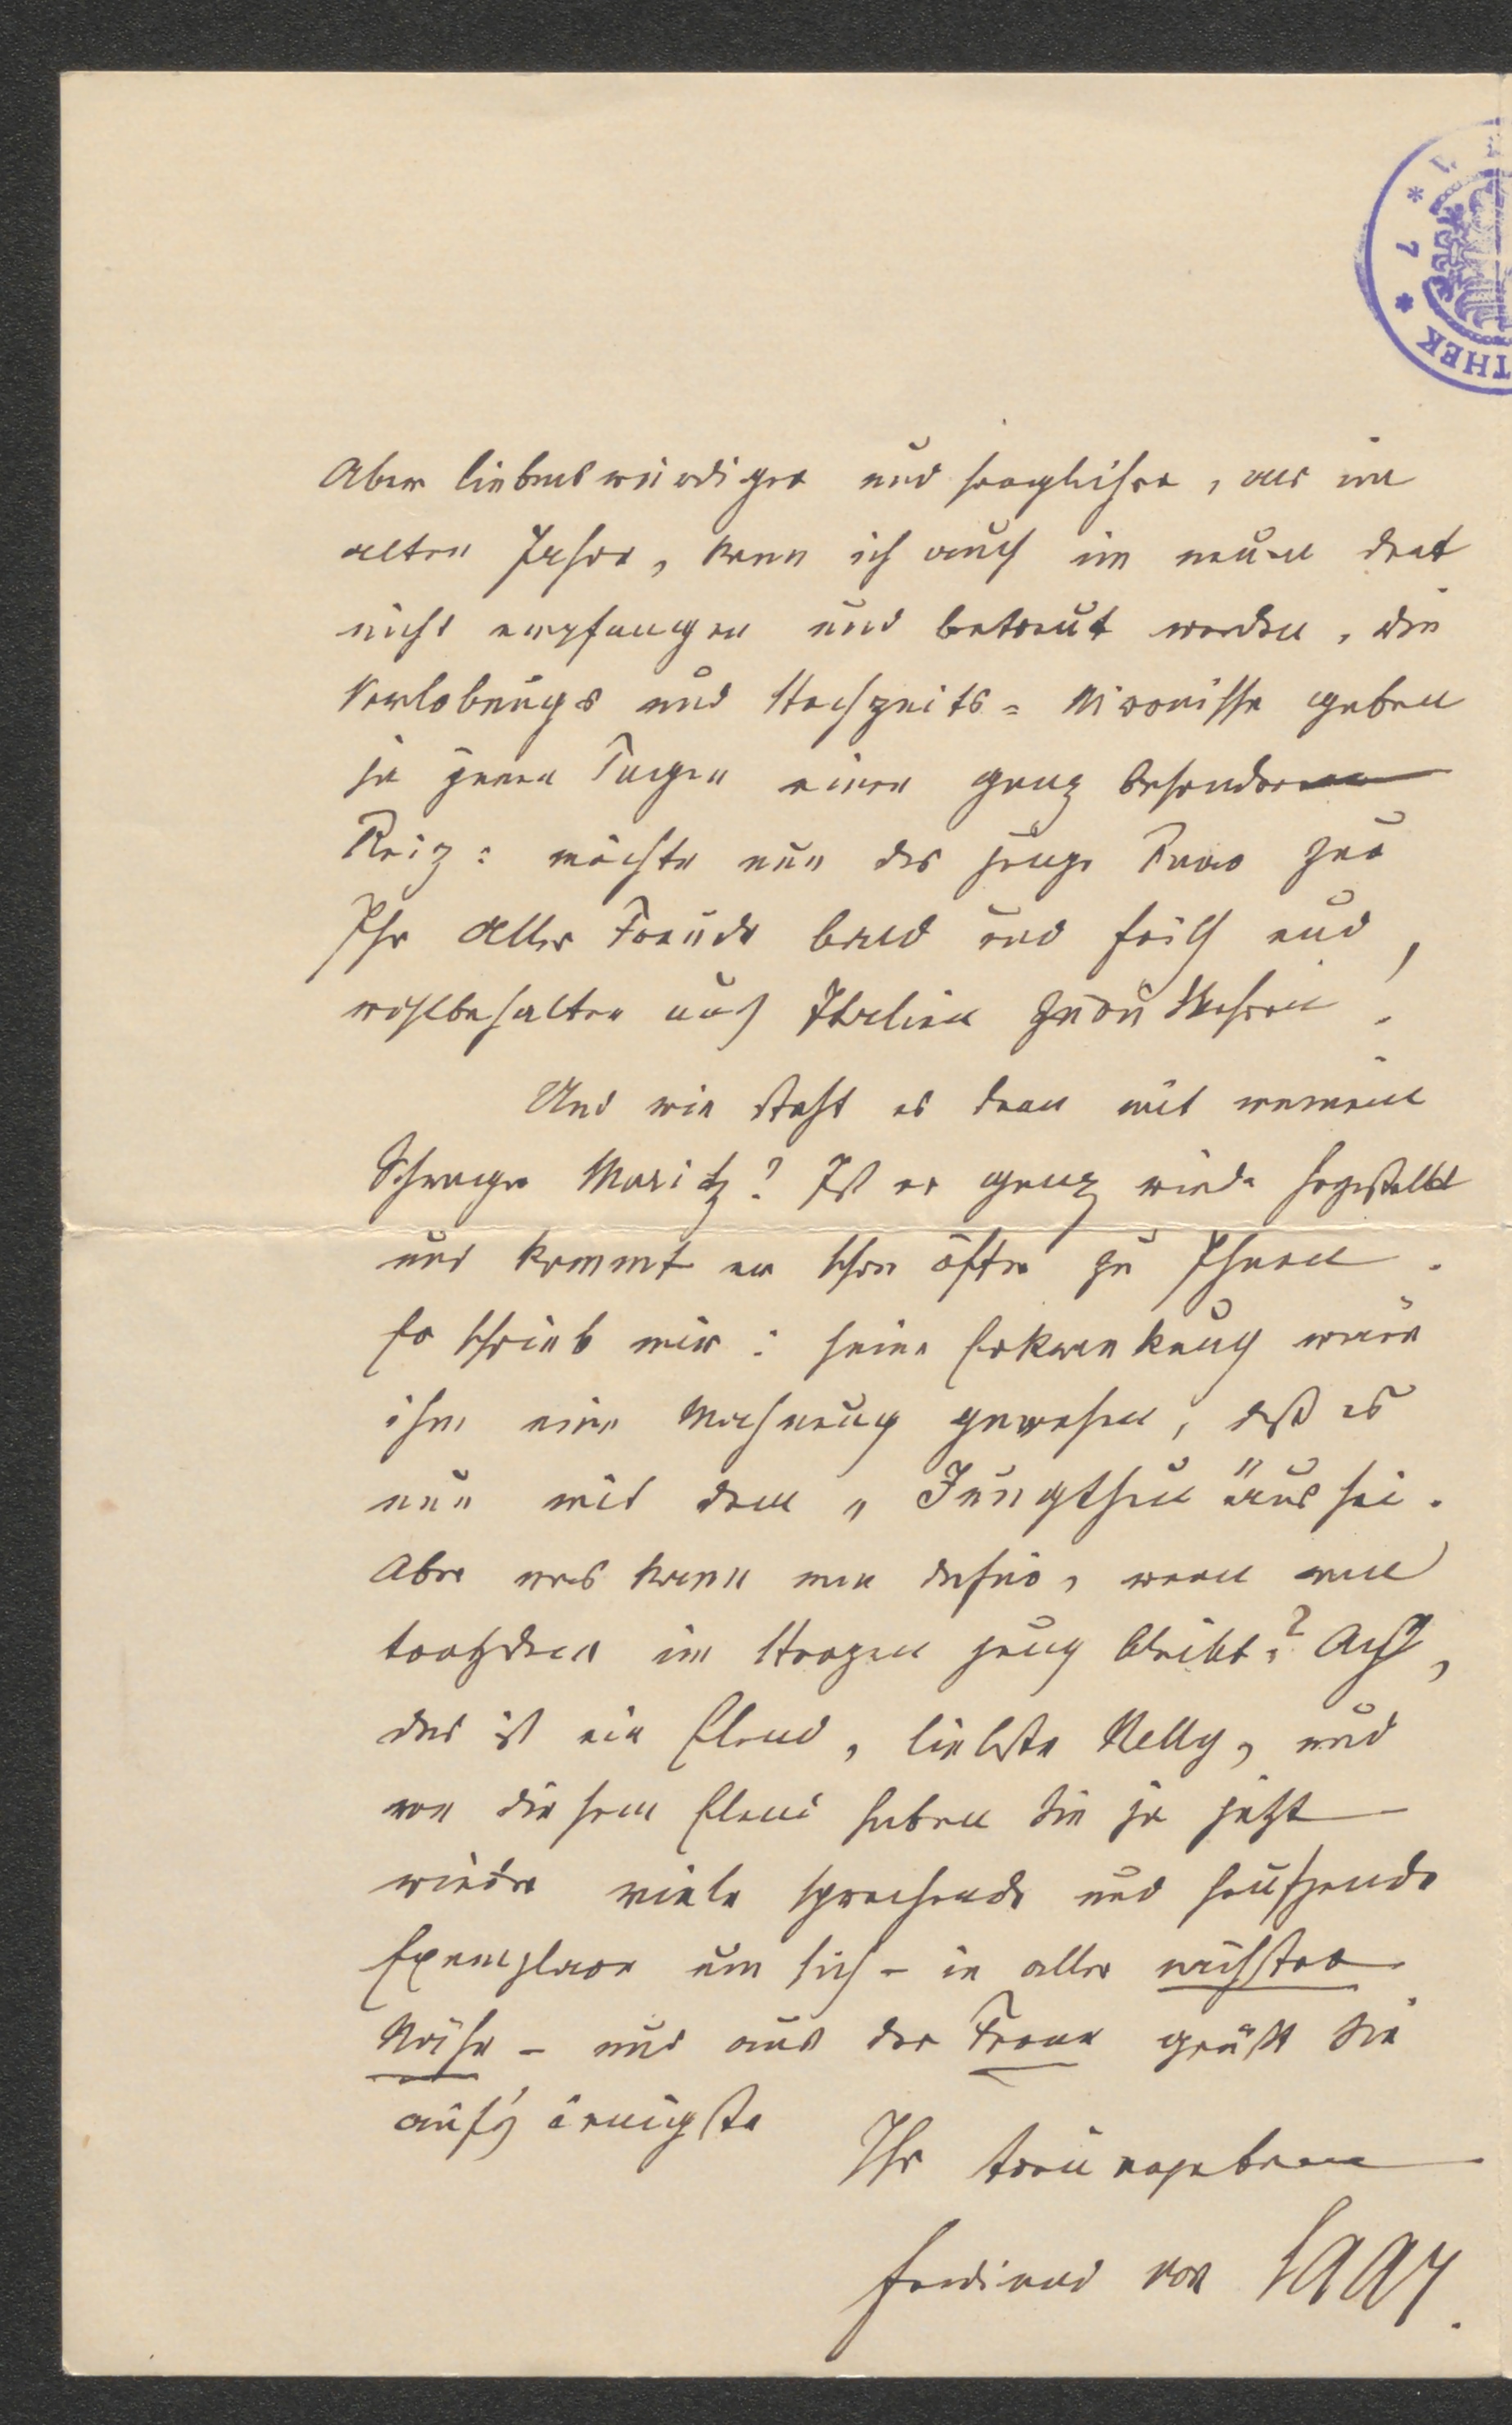 Aber liebenswürdiger und herzlicher, als im
alten Jahre, kann ich auch im neuen dort
nicht empfangen und betreut werden. Die
Verlobungs und Hochzeits-Wirrnisse gaben
ja jenen Tagen einen ganz besonderen
Reiz: möchte nun das junge Paar zu
Ihr aller Freude bald und frisch und
wohlbehalten aus Italien zurückkehren!
Und wie steht es denn mit meinem
Schwager Moritz? Ist er ganz wieder hergestellt
und kommt er schon öfter zu Ihnen.
Er schrieb mir: seine Erkrankung wäre
ihm eine Mahnung gewesen, daß es
nun mit dem „Jungthun" aus sei.
Aber was kann man dafür, wenn man
trotzdem im Herzen jung bleibt? Ach,
das ist ein Elend, liebste Nelly, und
von diesem Elend haben Sie ja jetzt
wieder viele sprechende und seufzende
Exemplare um sich – in aller nächster
Nähe – und aus der Ferne grüßt Sie
auf's innigste
Ihr treuergebener
Ferdinand von Saar.
THEK
* 7 *